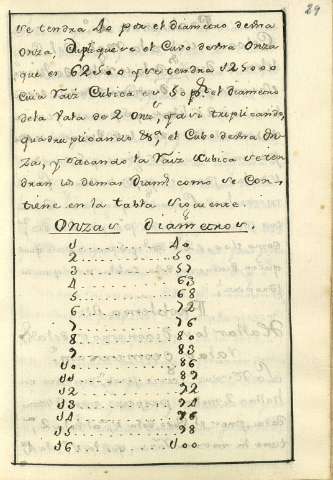 29
se tendra 40 por el diametro de una
Onza, Dupliquese el Cubo de una Onza
que es 62500 y se tendra 125000
cuia Raiz Cubica es 50 pa. el diametro
de la Vala de 2 Onzs, y asi triplicando,
quadruplicando &a, el Cubo de una On-
za, y sacando la Raiz Cubica se ten
dran los demas Diams como se Con-
tiene en la tabla siguiente.
Onzas Diametros.
1 ............ 40
2 ............ 50
3 ............ 57
4 ............ 63
5 ............ 68
6 ............ 72
7 ............ 76
8 ............ 80
9 ............ 83
10 ............ 86
11 ............ 89
12 ............ 92
13 ............ 94
14 ............ 96
15 ............ 98
16 ............ 100